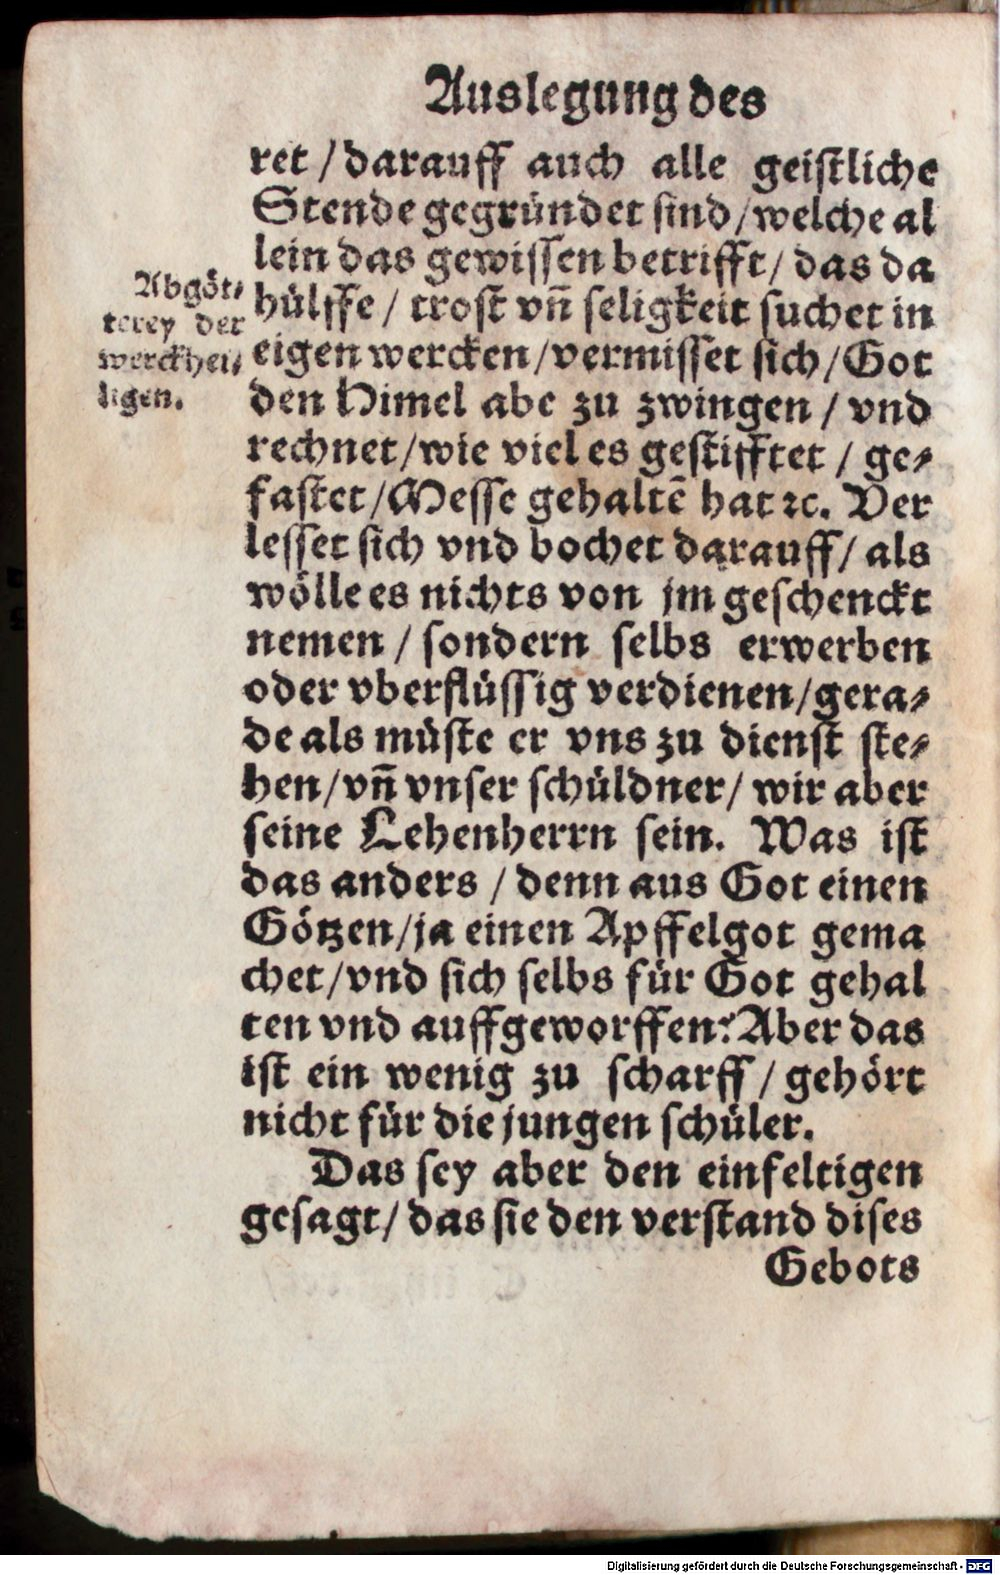 Auslegung des
ret / darauff auch alle geistliche
Stende gegründet sind / welche al
lein das gewissen betrifft / das da
hülffe / trost vn̄ seligkeit suchet in
eigen wercken / vermisset sich / Got
den Himel abe zu zwingen / vnd
rechnet / wie viel es gestifftet / ge⸗
fastet / Messe gehaltē hat ꝛc. Ver
lesset sich vnd bochet darauff / als
wölle es nichts von jm geschenckt
nemen / sondern selbs erwerben
oder vberflüssig verdienen / gera⸗
de als müste er vns zu dienst ste⸗
hen / vn̄ vnser schüldner / wir aber
seine Lehenherrn sein. Was ist
das anders / denn aus Got einen
Götzen / ja einen Apffelgot gema
chet / vnd sich selbs für Got gehal
ten vnd auffgeworffen? Aber das
ist ein wenig zu scharff / gehört
nicht für die jungen schüler.
Das sey aber den einfeltigen
gesagt / das sie den verstand dises
Gebots
Abgöt⸗
terey der
werckhei⸗
ligen.
Digitalisierung gefördert durch die Deutsche Forschungsgemeinschaft - DFG